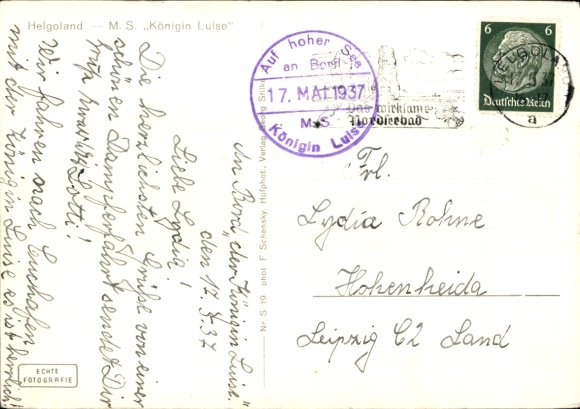 Helgoland — M. S. „Königin Luise"
An Bord „der Königin Luise."
den 17.5.37
Liebe Lydia!
Die herzlichsten Grüße von einer
schönen Dampferfahrt sendet Dir
Lotti!
Wir fahren nach Cuxhafen
mit der Königin Luise es ist herrlich!
ECHTE
FOTOGRAFIE
Nr. S. 19. phot. F. Schensky, Hofphot., Verlag Georg Stilke
Auf hoher See
an Bord
17. MAI 1937
M.S.
Königin Luise
Das wirksame
Nordseebad
HELGOLAND
a
6 6
Deutsches Reich
Frl.
Lydia Rohne
Hohenheida
Leipzig C2 Land